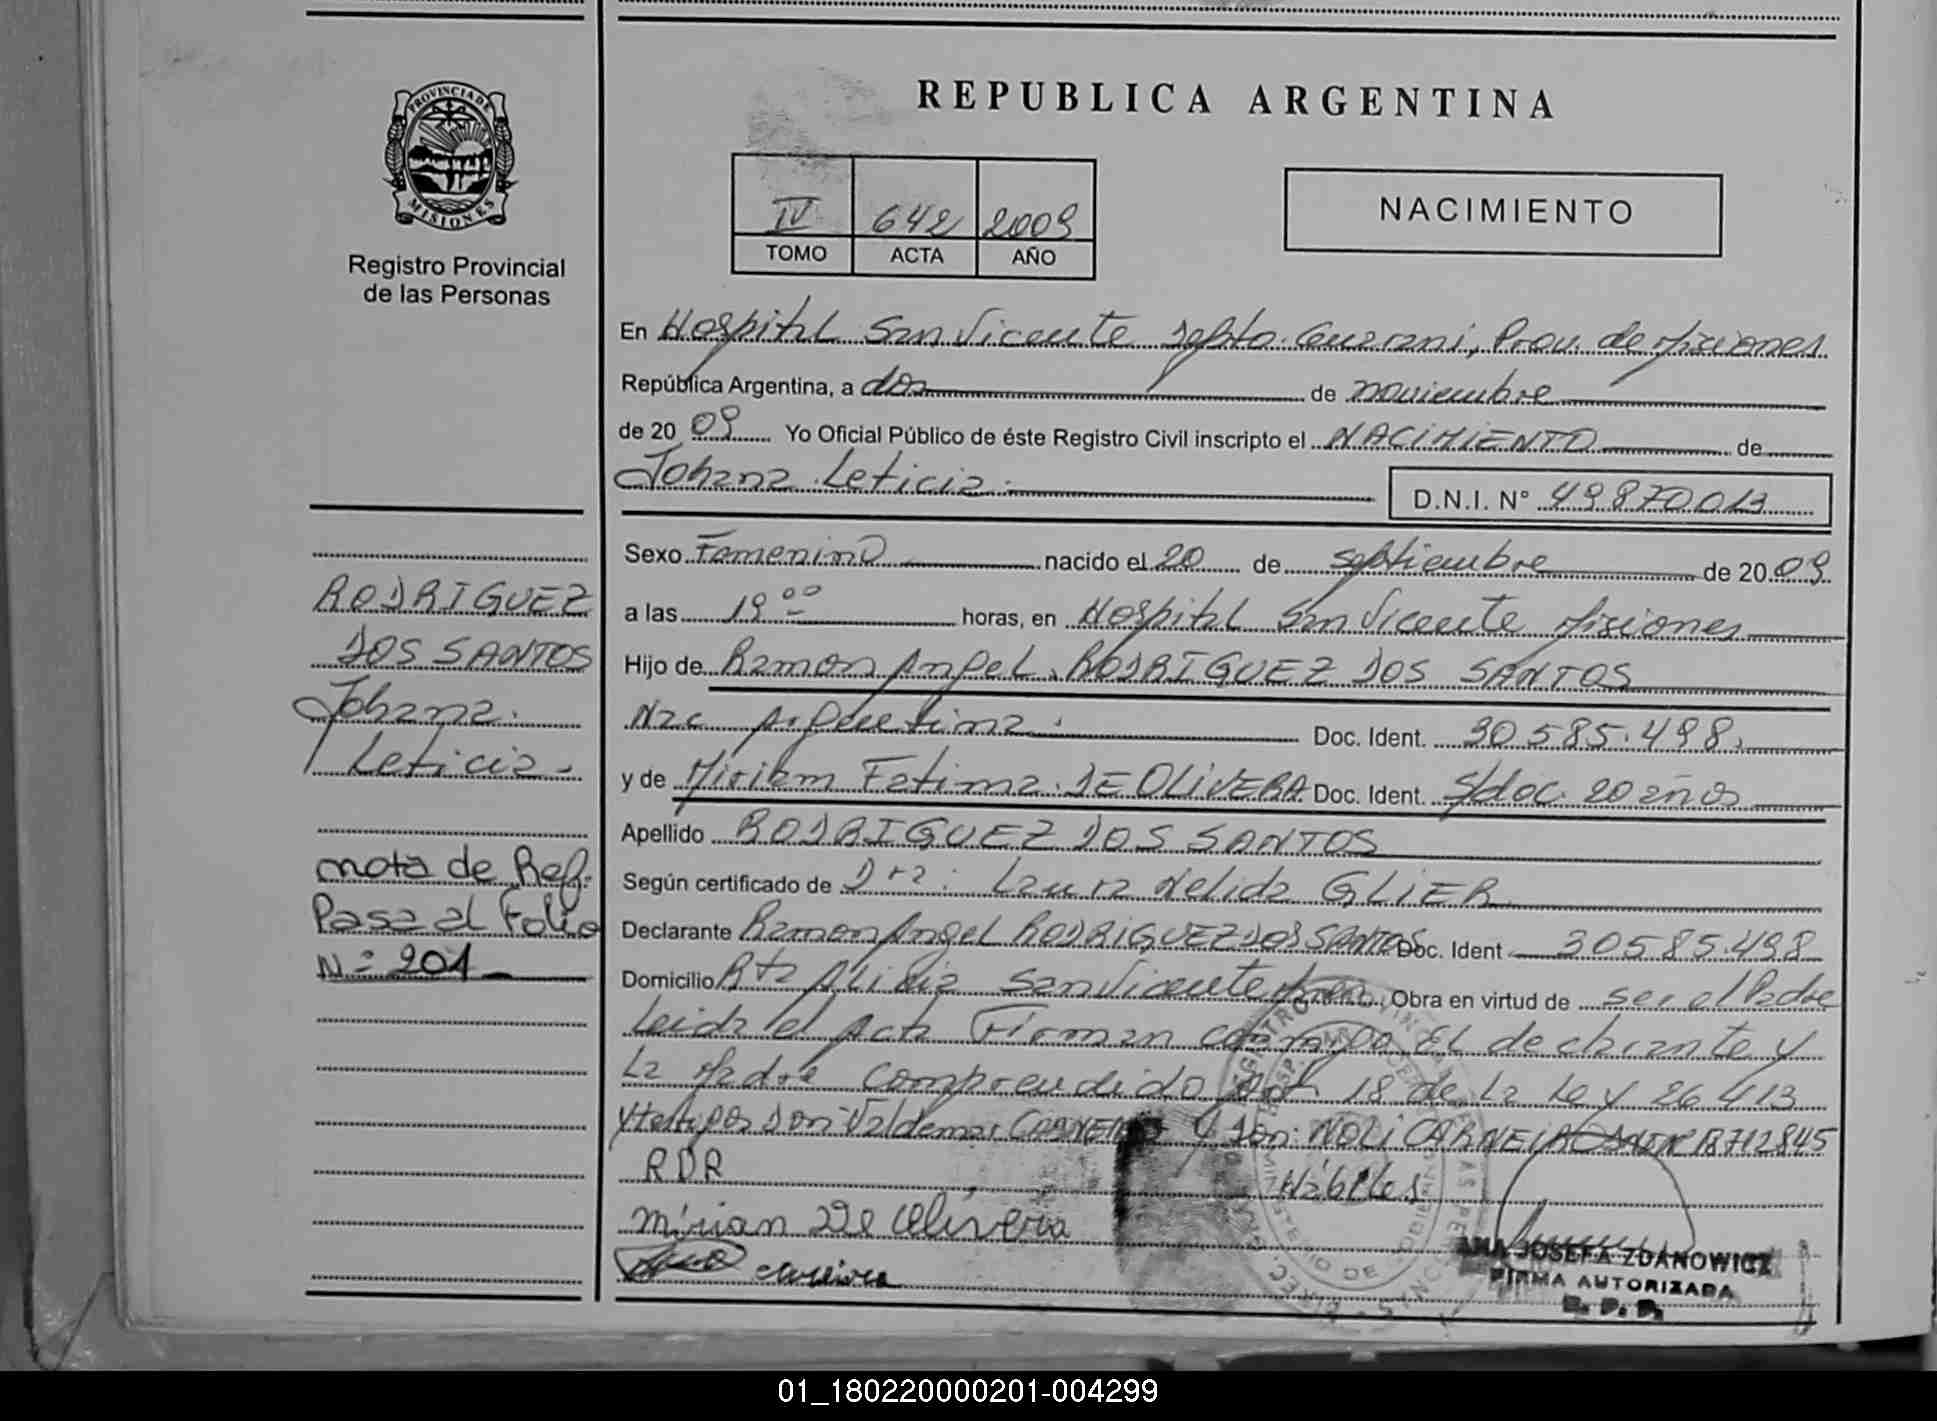 REPUBLICA ARGENTINA
PROVINCIA DE
MISIONES
Registro Provincial
de las Personas
IV 642 2009
TOMO ACTA AÑO
NACIMIENTO
En Hospital San Vicente Depto. Guarani, Prov. de Misiones
República Argentina, a dos de noviembre
de 2009 Yo Oficial Público de éste Registro Civil inscripto el NACIMIENTO de
Johana Leticia.
D.N.I. N° 49870013
Sexo Femenino nacido el 20 de septiembre de 2009.
a las 19 00 horas, en Hospital San Vicente Misiones
Hijo de Ramon Angel RODRIGUEZ DOS SANTOS
Nac Argentina. Doc. Ident. 30585.498.
y de Miriam Fatima DE OLIVERA Doc. Ident. S/doc. 20 años
Apellido RODRIGUEZ DOS SANTOS
Según certificado de Dra: Laura Nelida GLIER
Declarante Ramon Angel RODRIGUEZ DOS SANTOS Doc. Ident 30585.498
Domicilio Rta Alicia San Vicente Obra en virtud de ser el Padre
Leida el Acta Firman El declarante y
La Madre comprendido art 18 de La Ley 26413
y testigos Don Valdemar y Don: NOLI 18712845
RDR Hábiles
Mirian De Olivera
ANA JOSEFA ZDANOWICZ
FIRMA AUTORIZADA
R. P. P.
RODRIGUEZ
DOS SANTOS
Johana.
Leticia.
nota de Ref.
Pasa al Folio
N= 201
01_180220000201-004299